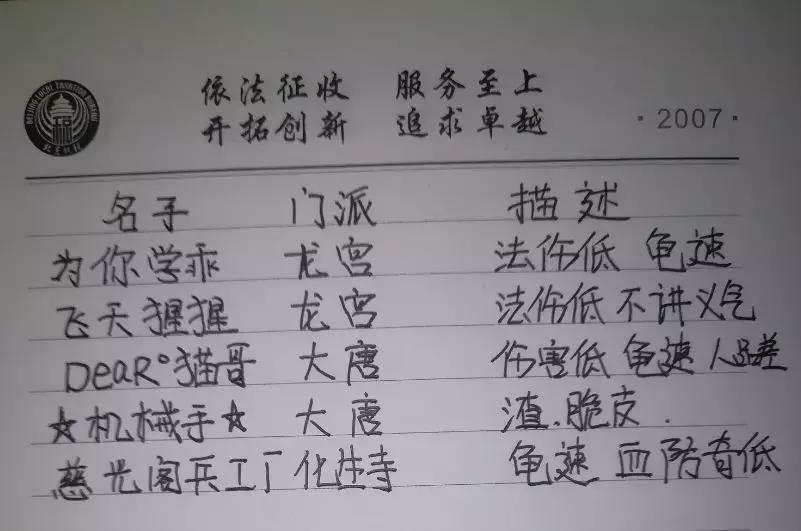 依法征收 服务至上
开拓创新 追求卓越
·2007·
BEIJING LOCAL TAXATION BUREAU
名字 门派 描述
为你学乖 龙宫 法伤低 龟速
飞天猩猩 龙宫 法伤低 不讲义气
DeaR°猫哥 大唐 伤害低 龟速 人品差
☆机械手☆ 大唐 渣.脆皮.
慈光阁兵工厂 化生寺 龟速 血防奇低